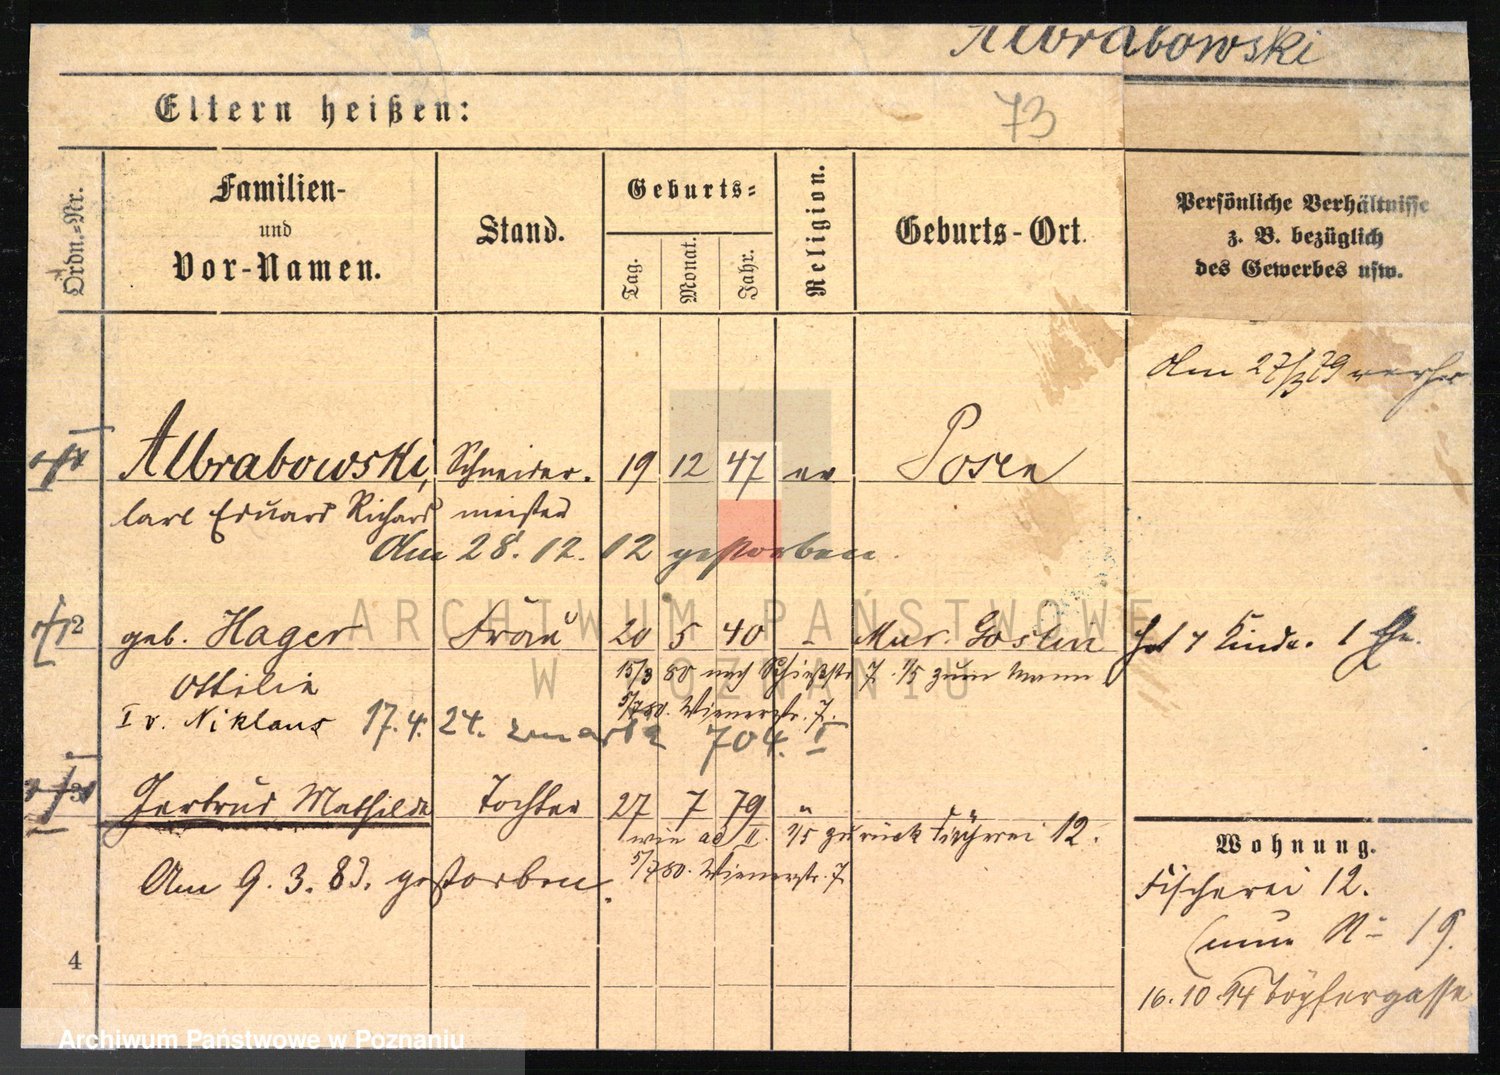 Albrabowski
73
Eltern heißen:
Ordn.-Nr.
Familien-
und
Vor-Namen.
Stand.
Geburts-
Tag.
Monat.
Jahr.
Religion.
Geburts-Ort.
Persönliche Verhältnisse
z. B. bezüglich
des Gewerbes usw.
Am 27/3 79
1 Albrabowski, Schneider- 19 12 47 ev Posen
Carl Eduard Richard meister
Am 28. 12. 12 gestorben.
2 geb. Hager Frau 20 5 40 " Mur. Goslin hat 4 Kinder 1 Ehe.
Ottilie 15/3 80 nach Schießstr 7. 1/5 zum Mann
I v. Niklaus 5/7 80. Wienerstr. 7.
17.4. 24. 704. I
3 Gertrud Mathilde Tochter 27 7 79 "
wie ad II. 1/5 zurück Fischerei 12.
5/7 80. Wienerstr. 7
Am 9. 3. 83. gestorben.
4
Wohnung.
Fischerei 12.
(nun No 19.
16.10.94 Töpfergasse
ARCHIWUM PAŃSTWOWE
W POZNANIU
Archiwum Państwowe w Poznaniu